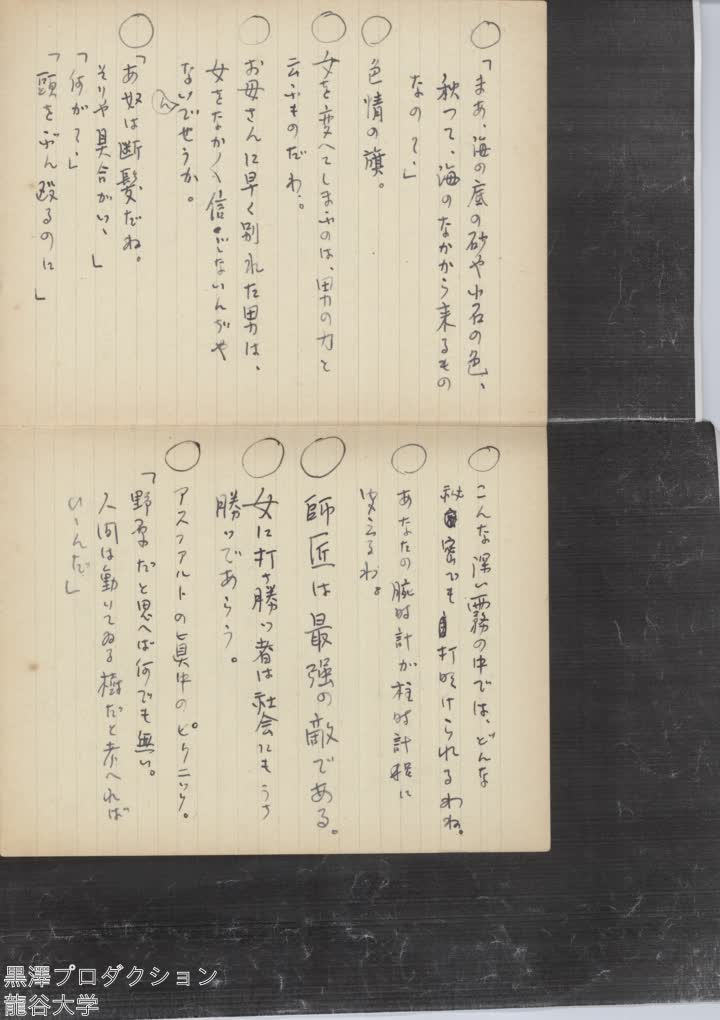 ○「まあ、海の底の砂や小石の色、
秋つて、海のなかから来るもの
なのて、」
○色情の旗。
○女を変へてしまふのは、男の力と
云ふものだわ。
○お母さんに早く別れた男は、
女をなか／＼信じないんぢや
ないでせうか。
ん
○「あ奴は断髪だね。
そりや具合がいゝ」
「何がて、」
「頭をぶん殴るのに」
○こんな深い霧の中では、どんな
秘密でも打明けられるわね。
○あなたの腕時計が柱時計程に
見えるわ。
○師匠は最強の敵である。
○女に打ち勝つ者は社会にもうち
勝つであらう。
○アスファルトの真中のピクニック。
「野原だと思へば何でも無い。
人間は動いてゐる樹だと考へれば
いゝんだ」
黒澤プロダクション
龍谷大学